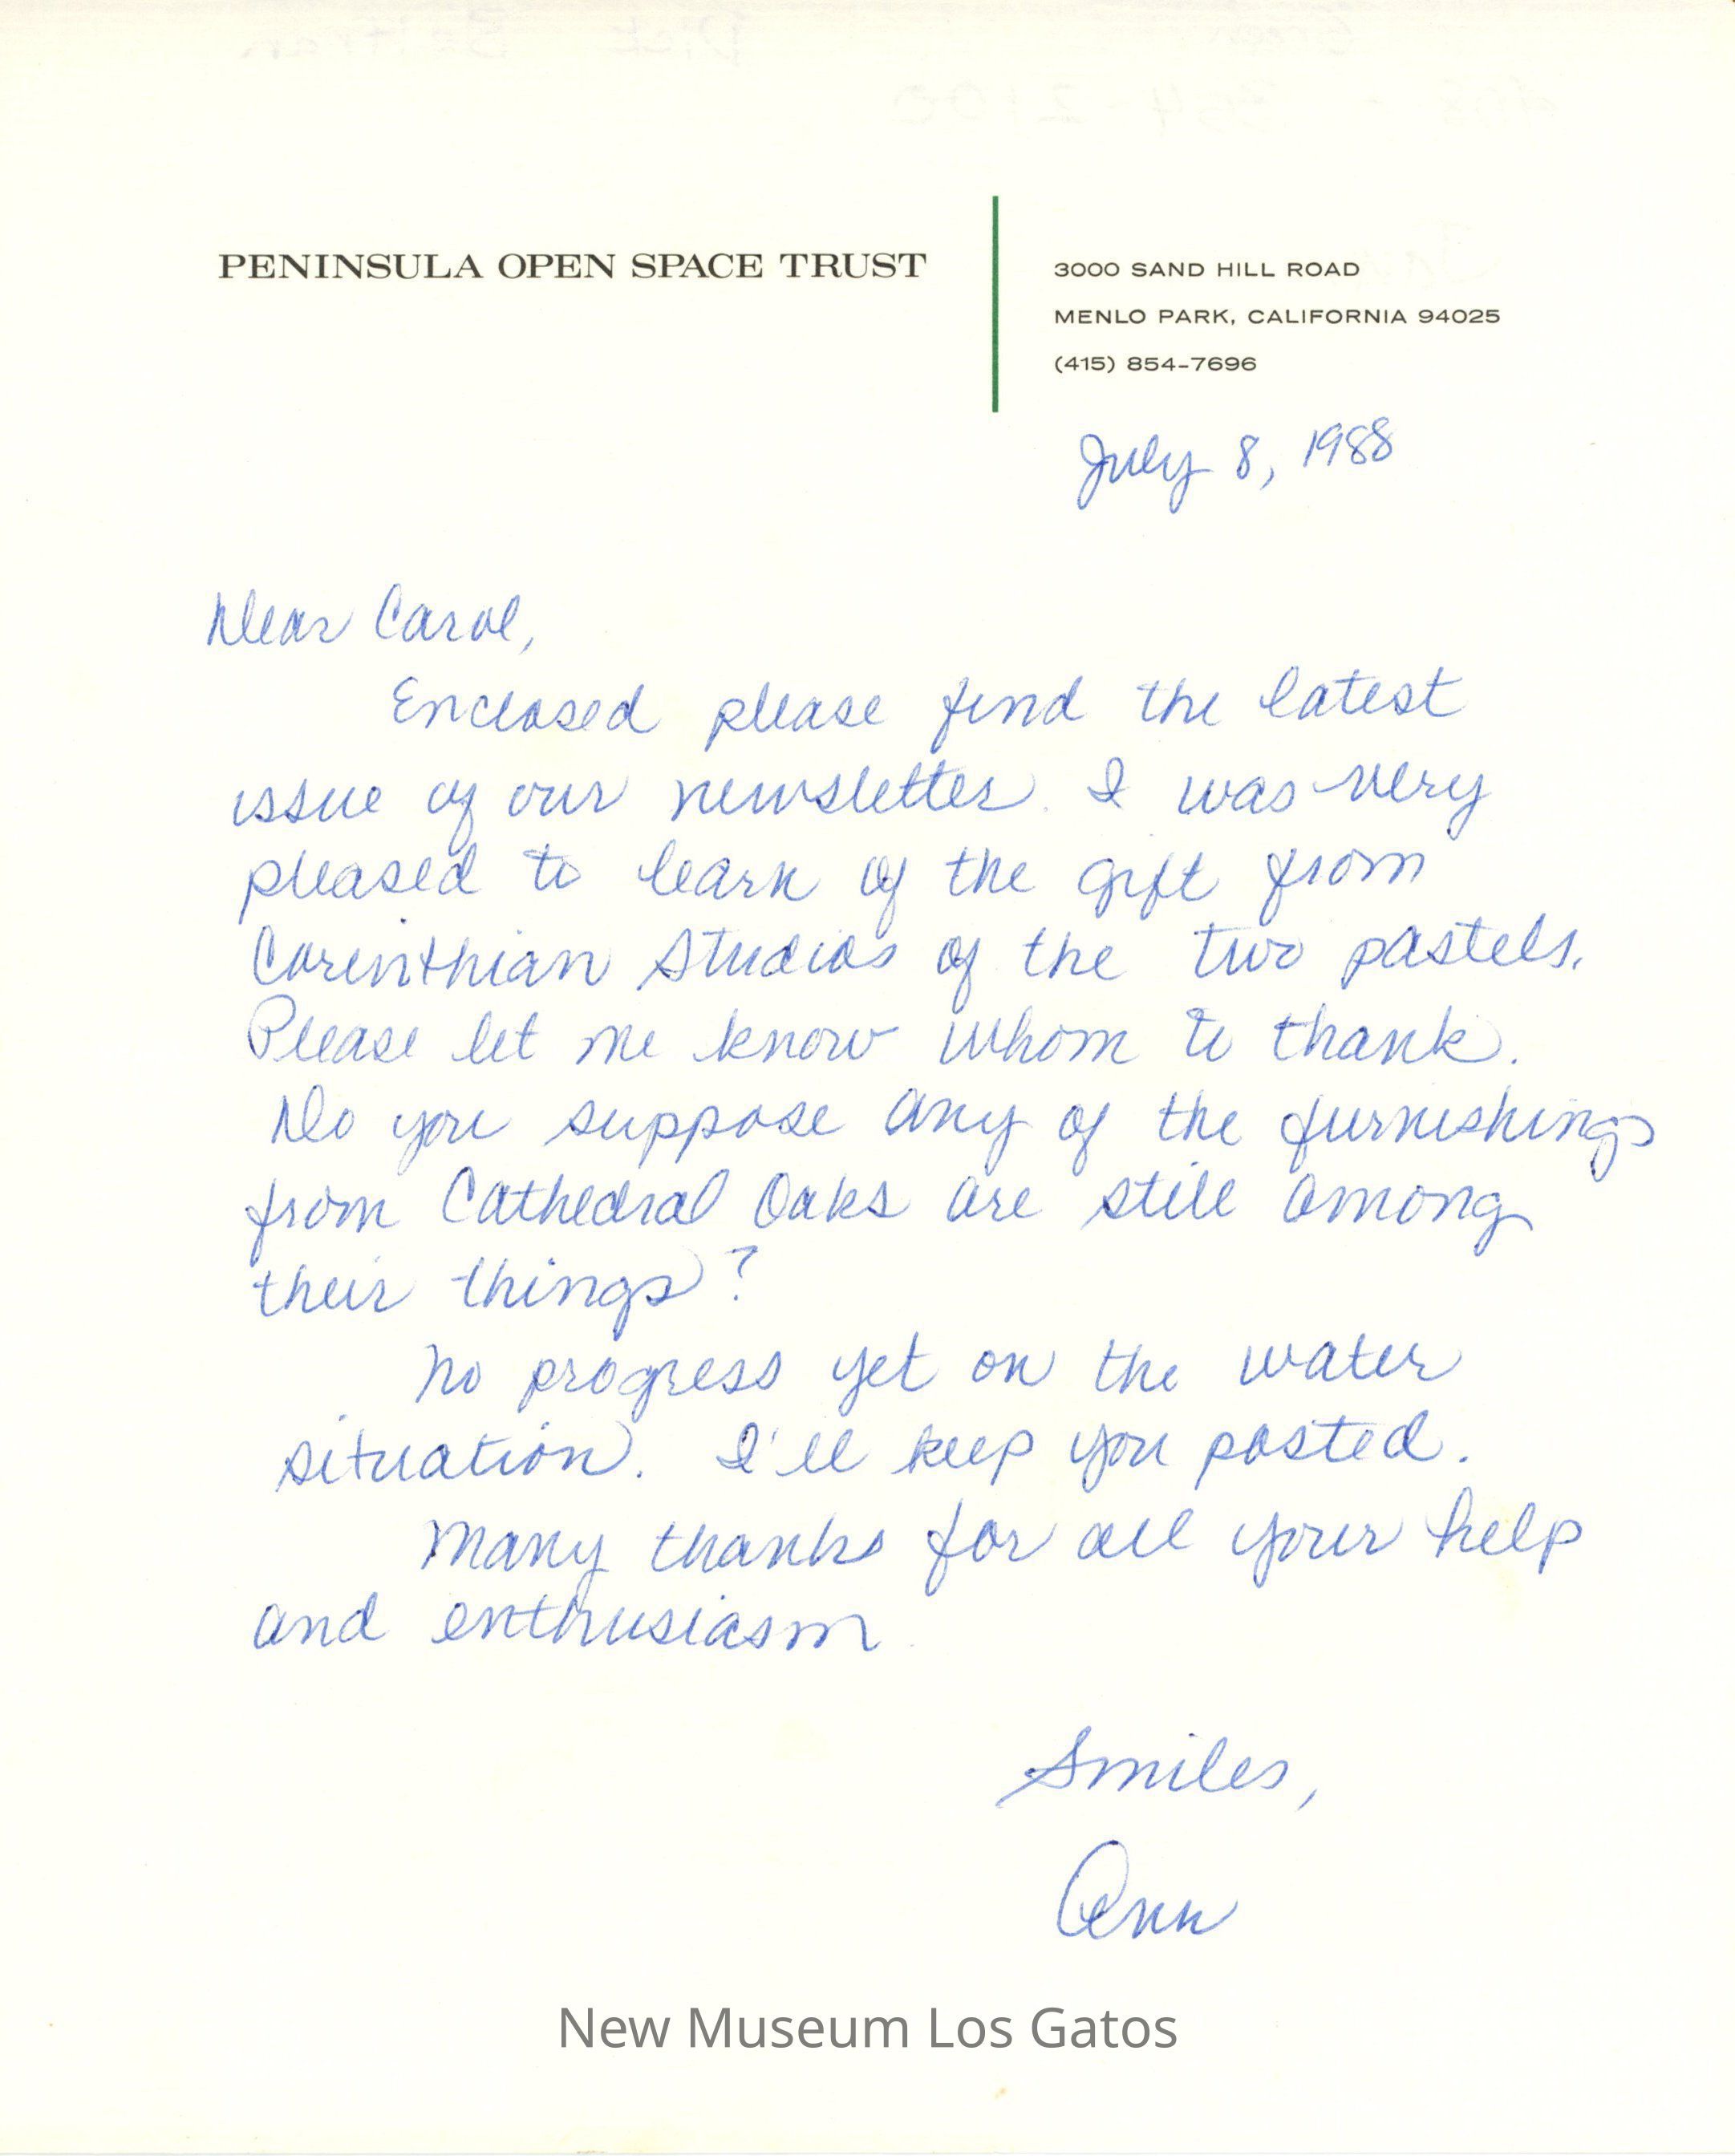 PENINSULA OPEN SPACE TRUST
3000 SAND HILL ROAD
MENLO PARK, CALIFORNIA 94025
(415) 854-7696
July 8, 1988
Dear Carol,
Enclosed please find the latest
issue of our newsletter. I was very
pleased to learn of the gift from
Corinthian Studios of the two pastels.
Please let me know whom to thank.
Do you suppose any of the furnishings
from Cathedral Oaks are still among
their things?
No progress yet on the water
situation. I'll keep you posted.
Many thanks for all your help
and enthusiasm.
Smiles,
Ann
New Museum Los Gatos